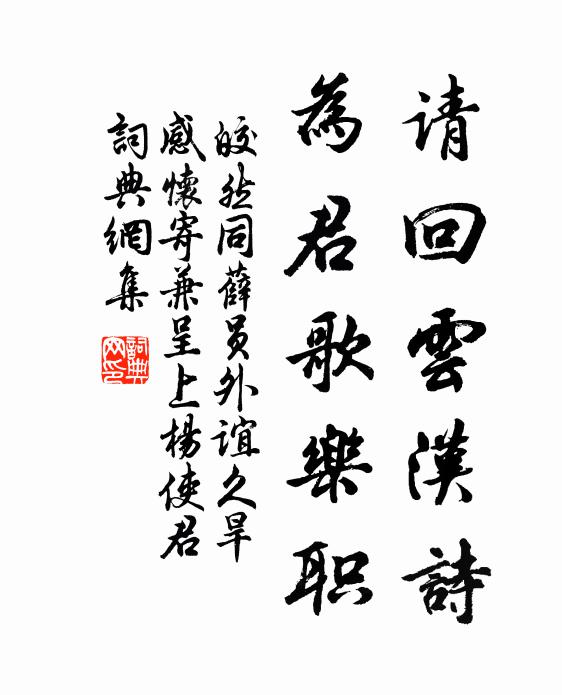 请回雲漢詩
為君歌樂职
皎然同薛员外谊久旱
感懷寄兼呈上楊使君
詞典網集
詞典网印